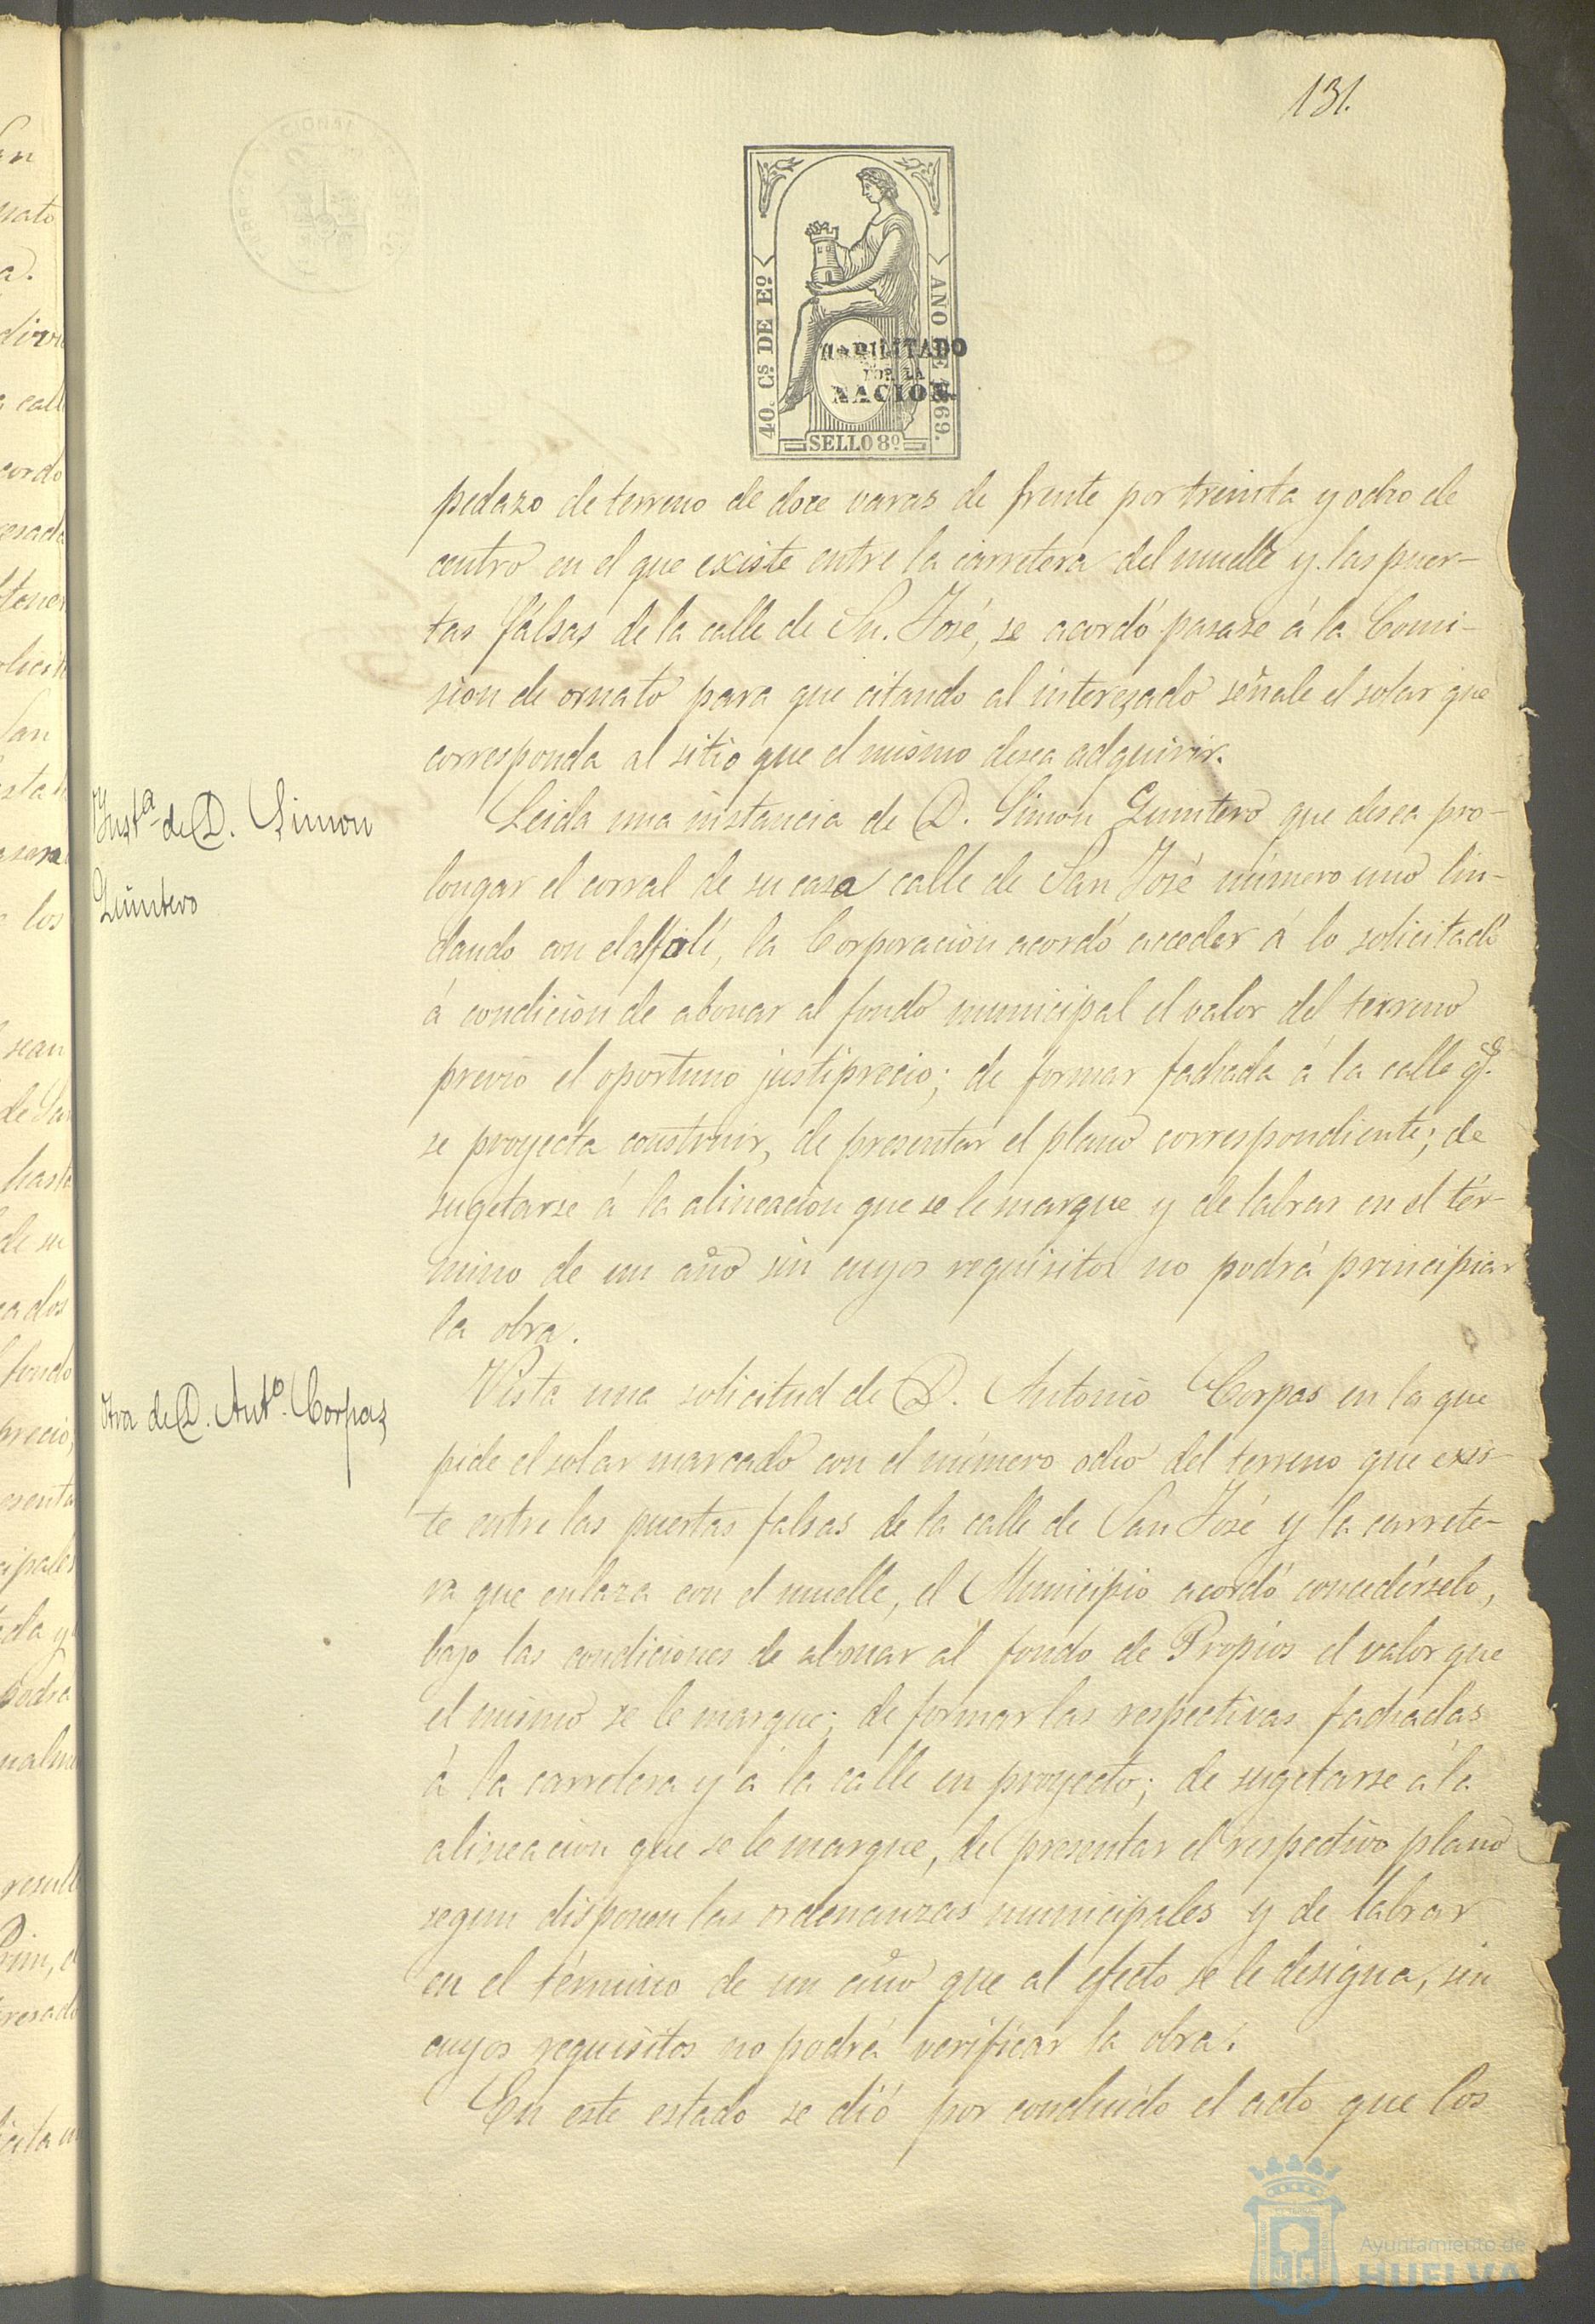 131.
40. Cs DE Eo
AÑO DE 1869.
HABILITADO
POR LA
NACION.
SELLO 8º
pedazo de terreno de doce varas de frente por treinta y ocho de
centro en el que existe entre la carretera del muelle y las puer-
tas fálsas de la calle de Sn. José, se acordó pasase á la Comi-
sion de ornato para que citando al interesado señale el solar que
corresponda al sitio que el mismo desea adquirir.
Ynsta de D. Simon
Quintero
Leida una instancia de D. Simon Quintero que desea pro-
longar el corral de su casa calle de San José número uno lin-
dando con el alfolí, la Corporacion acordó acceder á lo solicitado
á condicion de abonar al fondo municipal el valor del terreno
previo el oportuno justiprecio; de formar fachada á la calle qe.
se proyecta construir, de presentar el plano correspondiente; de
sugetarse á la alineacion que se le marque y de labrar en el tér-
mino de un año sin cuyos requisitos no podrá principiar
la obra.
Otra de D. Anto. Corpas
Vista una solicitud de D. Antonio Corpas en la que
pide el solar marcado con el número ocho del terreno que exis-
te entre las puertas falsas de la calle de San José y la carrete-
ra que enlaza con el muelle, el Municipio acordó concedérselo,
bajo las condiciones de abonar al fondo de Propios el valor que
el mismo se le marque; de formar las respectivas fachadas
á la carretera y á la calle en proyecto; de sugetarse á la
alineacion que se le marque, de presentar el respectivo plano
segun disponen las ordenanzas municipales y de labrar
en el término de un año que al efecto se le designa, sin
cuyos requisitos no podrá verificar la obra.
En este estado se dió por concluido el acto que los
Ayuntamiento de
HUELVA